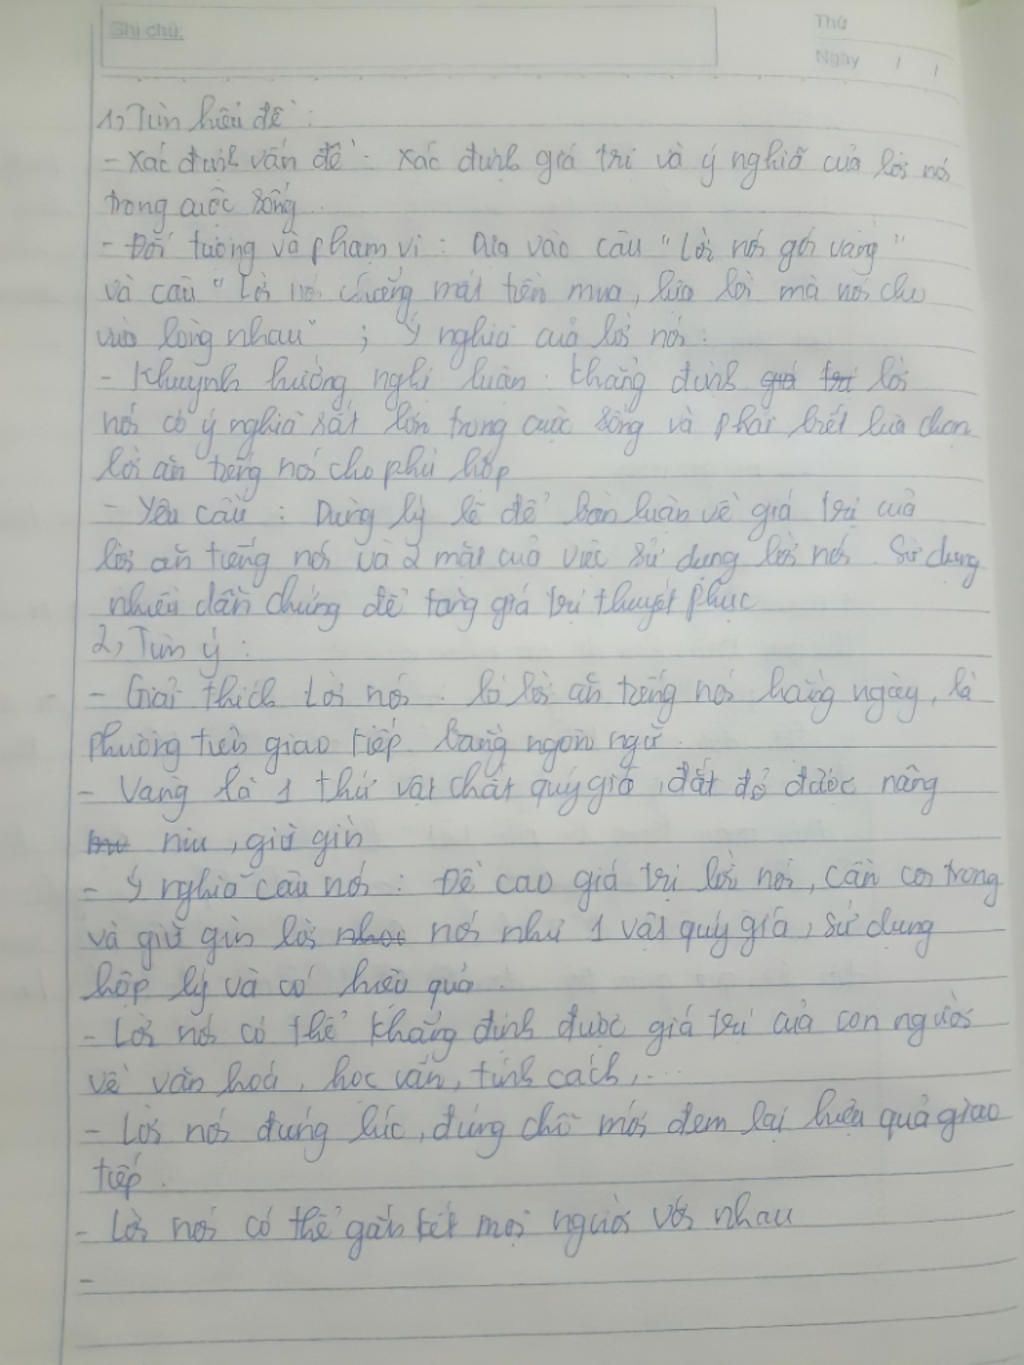 Ghi chú:
Thứ
Ngày / /
1, Tìm hiểu đề :
- Xác định vấn đề : Xác định giá trị và ý nghĩa của lời nói
trong cuộc sống.
- Đối tượng và phạm vi : Dựa vào câu "Lời nói gói vàng"
và câu "Lời nói chẳng mất tiền mua, lựa lời mà nói cho
vừa lòng nhau" ; ý nghĩa của lời nói.
- Khuynh hướng nghị luận : Khẳng định giá trị lời
nói có ý nghĩa rất lớn trong cuộc sống và phải biết lựa chọn
lời ăn tiếng nói cho phù hợp
- Yêu cầu : Dùng lý lẽ để bàn luận về giá trị của
lời ăn tiếng nói và 2 mặt của việc sử dụng lời nói. Sử dụng
nhiều dẫn chứng để tăng giá trị thuyết phục
2, Tìm ý :
- Giải thích Lời nói : là lời ăn tiếng nói hằng ngày, là
phương tiện giao tiếp bằng ngôn ngữ.
- Vàng là 1 thứ vật chất quý giá, đắt đỏ được nâng
niu, giữ gìn
- Ý nghĩa câu nói : Đề cao giá trị lời nói, cần coi trọng
và giữ gìn lời nói như 1 vật quý giá, sử dụng
hợp lý và có hiệu quả.
- Lời nói có thể khẳng định được giá trị của con người
về văn hoá, học vấn, tính cách,...
- Lời nói đúng lúc, đúng chỗ mới đem lại hiệu quả giao
tiếp.
- Lời nói có thể gắn kết mọi người với nhau
-